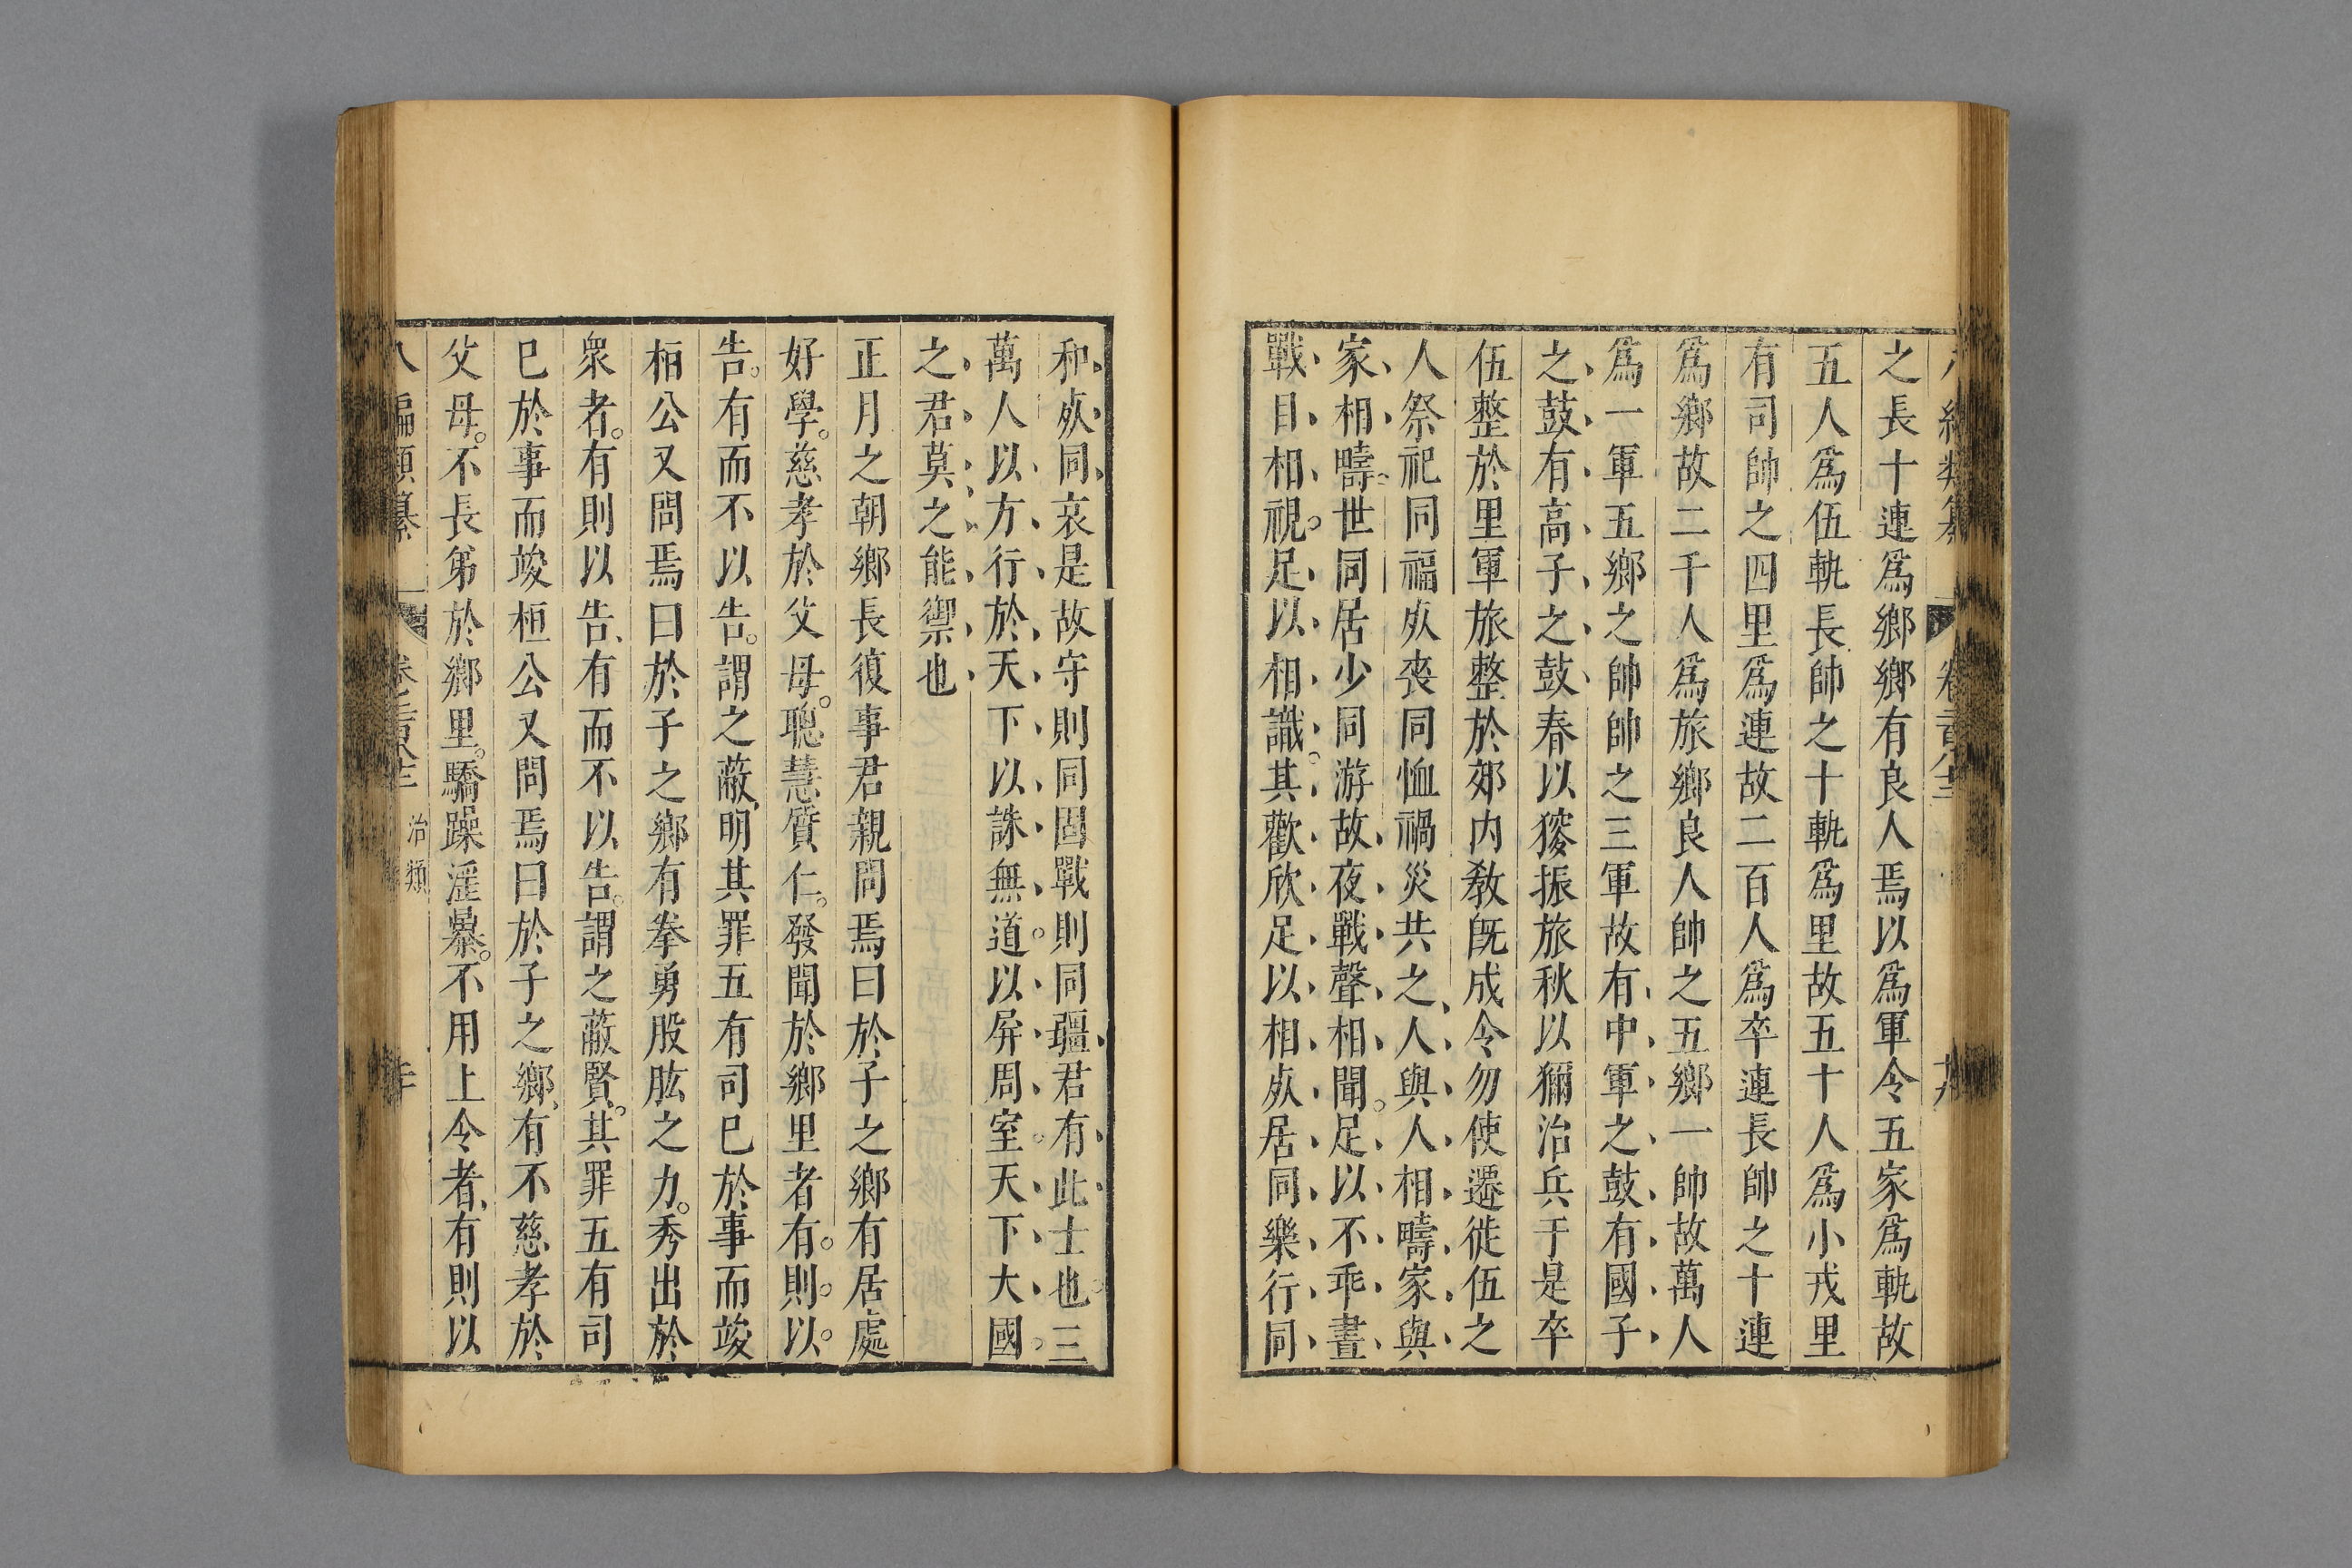 之長十連爲鄉鄉有良人焉以爲軍令五家爲軌故
五人爲伍軌長帥之十軌爲里故五十人爲小戎里
有司帥之四里爲連故二百人爲卒連長帥之十連
爲鄉故二千人爲旅鄉良人帥之五鄉一帥故萬人
爲一軍五鄉之帥帥之三軍故有中軍之鼓有國子
之鼓有高子之鼓春以獀振旅秋以獮治兵于是卒
伍整於里軍旅整於郊内教旣成令勿使遷徙伍之
人祭祀同福𣦸喪同恤禍災共之人與人相疇家與
家相疇世同居少同游故夜戰聲相聞。足以不乖晝
戰目相視。足以相識。其歡欣足以相𣦸居同樂行同
和𣦸同哀是故守則同固戰則同疆君有此士也。三
萬人以方行於天下以誅無道。以屏周室。天下大國。
之君莫之能禦也
正月之朝鄉長復事君親問焉曰於子之鄉有居處
好學。慈孝於父母。聰慧質仁。發聞於鄉里者有。則。以。
告。有而不以告。謂之蔽明其罪五有司巳於事而竣
桓公又問焉曰於子之鄉有拳勇股肱之力。秀出於
衆者。有則以告、有而不以告。謂之蔽賢。其罪五有司
巳於事而竣桓公又問焉曰於子之鄉、有不慈孝於
父母。不長弟於鄉里。驕躁淫暴。不用上令者、有則以
八編類纂 卷之一百八十三 治類 二十